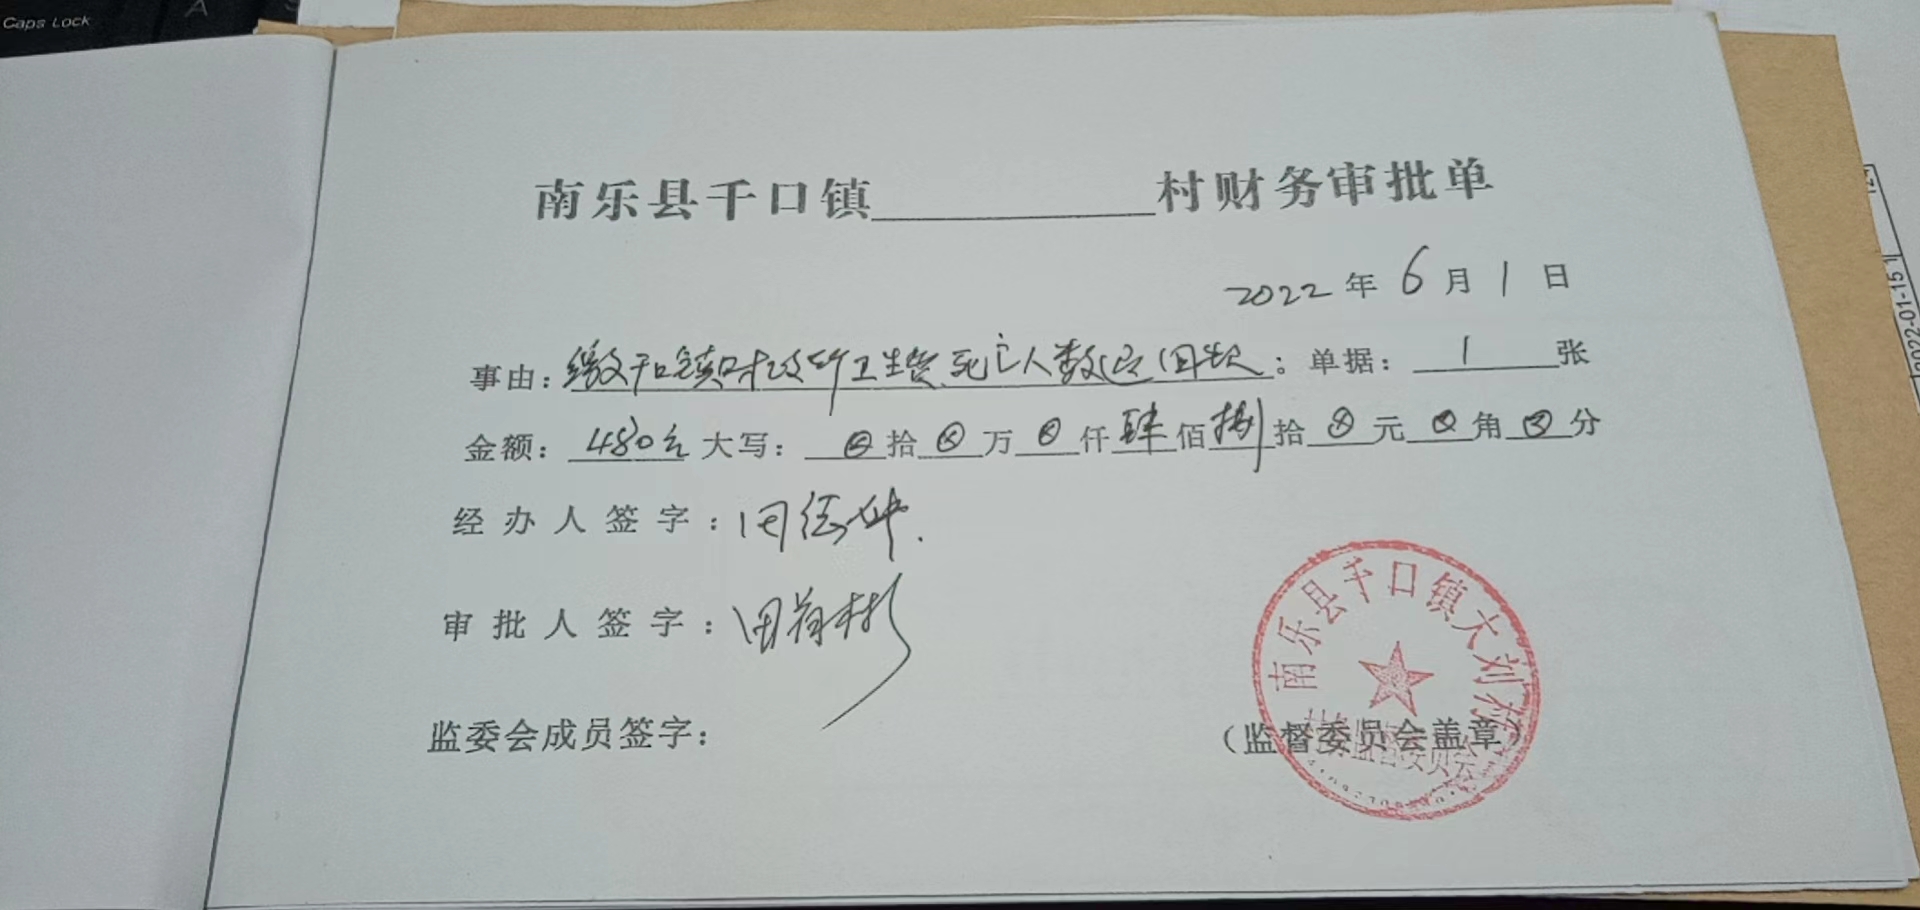 Caps Lock
A
南乐县千口镇__________村财务审批单
2022年6月1日
事由:缴千口镇财政所卫生费死亡人数退回款;单据:1张
金额:480元大写:⊗拾⊗万⊗仟肆佰捌拾⊗元⊗角⊗分
经办人签字:
审批人签字:田
监委会成员签字:
(监督委员会盖章)
南乐县千口镇大刘村
监督委员会
2022-01-15